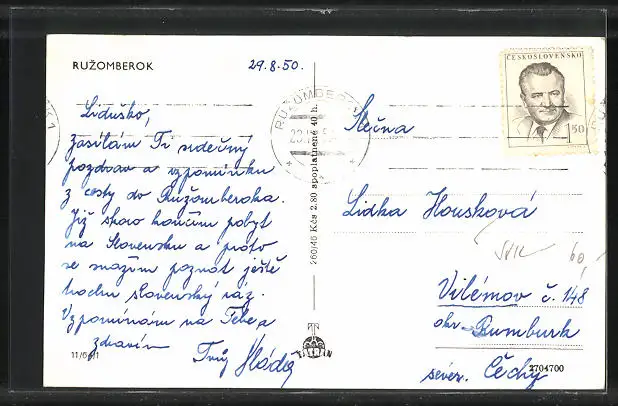 RUŽOMBEROK
29.8.50.
Liduško,
zasílám Ti srdečný
pozdrav a vzpomínku
z cesty do Ružomberoka.
Již skoro končím pobyt
na Slovensku a proto
se snažím poznat ještě
trochu slovenský ráz.
Vzpomínám na Tebe a
zdravím
Tvůj Sláďa
11/6
260/46 Kčs 2.80 spoplatnené 40 h.
RUŽOMBEROK
ČESKOSLOVENSKO
1.50
Slečna
Lidka Housková
60,
Vilémov č. 148
okr. Rumburk
sever. Čechy
2704700
TATRAN